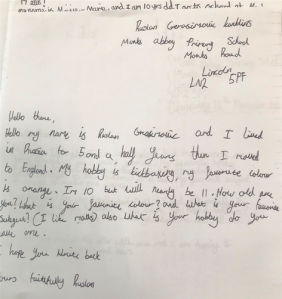 name is Maria, and I am 10 years old. I
Ruslan Gerasimovic
Monks abbey Primary School
Monks Road
Lincoln
LN2 5PF
Hello there,
Hello my name is Ruslan and I lived
in Russia for 5 and a half years then I moved
to England. My hobby is kickboxing, my favorite colour
is orange. Im 10 but will nearly be 11. How old are
you? What is your favourite colour? and What is your favorite
Subject? (I like maths) also What is your hobby do you
one.
hope you Write back
faithfully Ruslan